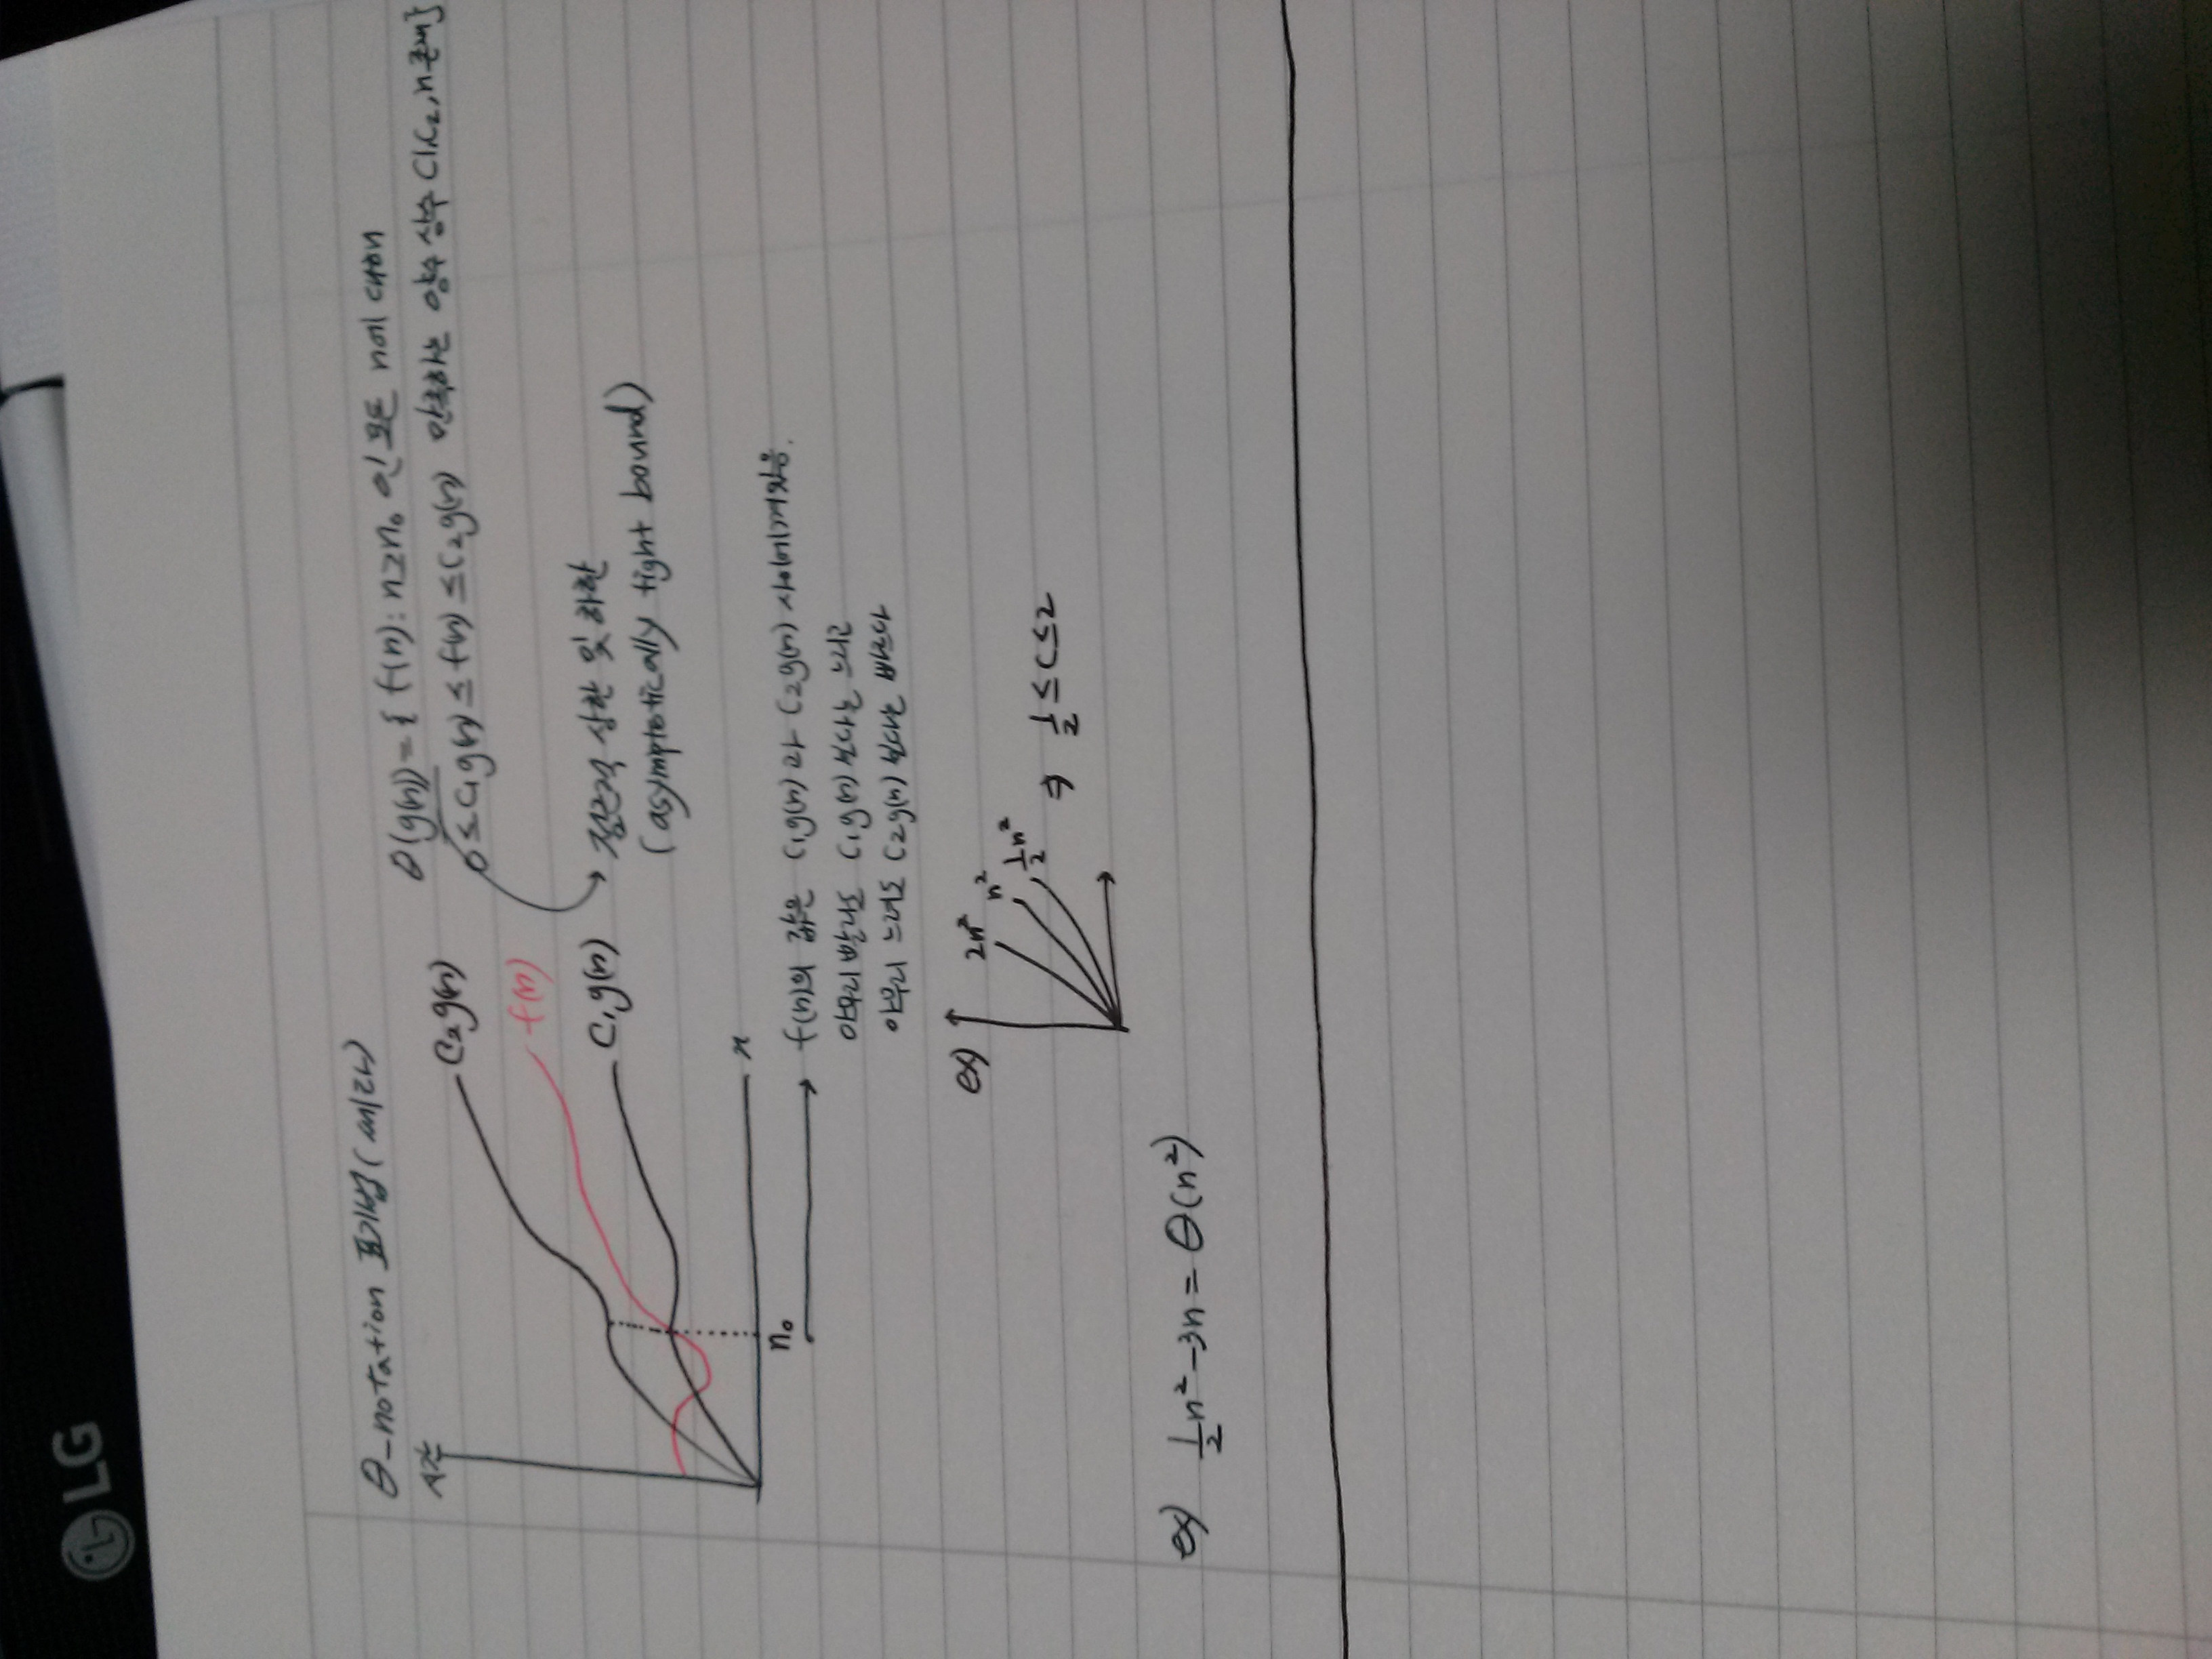 LG
θ-notation 표기법 (쎄타)
θ(g(n)) = { f(n) : n≥n₀ 인 모든 n에 대하여
0 ≤ C₁g(n) ≤ f(n) ≤ C₂g(n) 만족하는 양수 상수 C₁,C₂,n 존재}
시간
C₂g(n)
f(n)
C₁g(n)
점근적 상한 및 하한
(asymptotically tight bound)
n
n₀
f(n)의 값은 C₁g(n)과 C₂g(n) 사이에 껴있음.
아무리 빨라도 C₁g(n) 보다는 느리고
아무리 느려도 C₂g(n) 보다는 빠르다
ex)
2n²
n²
½n²
⇒ ½ ≤ C ≤ 2
ex) ½n² - 3n = Θ(n²)